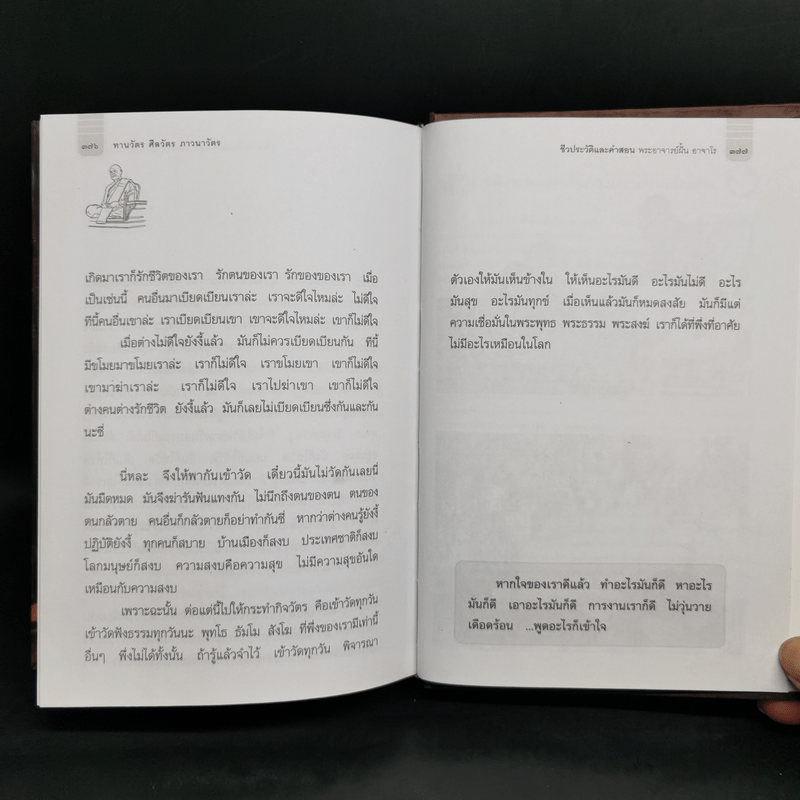 ๓๗๖ ทานวัตร ศีลวัตร ภาวนาวัตร
เกิดมาเราก็รักชีวิตของเรา รักตนของเรา รักของของเรา เมื่อ
เป็นเช่นนี้ คนอื่นมาเบียดเบียนเราล่ะ เราจะดีใจไหมล่ะ ไม่ดีใจ
ทีนี้คนอื่นเขาล่ะ เราเบียดเบียนเขา เขาจะดีใจไหมล่ะ เขาก็ไม่ดีใจ
เมื่อต่างไม่ดีใจยังงี้แล้ว มันก็ไม่ควรเบียดเบียนกัน ทีนี้
มีขโมยมาขโมยเราล่ะ เราก็ไม่ดีใจ เราขโมยเขา เขาก็ไม่ดีใจ
เขามาฆ่าเราล่ะ เราก็ไม่ดีใจ เราไปฆ่าเขา เขาก็ไม่ดีใจ
ต่างคนต่างรักชีวิต ยังงี้แล้ว มันก็เลยไม่เบียดเบียนซึ่งกันและกัน
นะซี่
นี่หละ จึงให้พากันเข้าวัด เดี๋ยวนี้มันไม่วัดกันเลยนี่
มันมืดหมด มันจึงฆ่ารันฟันแทงกัน ไม่นึกถึงตนของตน ตนของ
ตนกลัวตาย คนอื่นก็กลัวตายก็อย่าทำกันซี่ หากว่าต่างคนรู้ยังงี้
ปฏิบัติยังงี้ ทุกคนก็สบาย บ้านเมืองก็สงบ ประเทศชาติก็สงบ
โลกมนุษย์ก็สงบ ความสงบคือความสุข ไม่มีความสุขอันใด
เหมือนกับความสงบ
เพราะฉะนั้น ต่อแต่นี้ไปให้กระทำกิจวัตร คือเข้าวัดทุกวัน
เข้าวัดฟังธรรมทุกวันนะ พุทโธ ธัมโม สังโฆ ที่พึ่งของเรามีเท่านี้
อื่นๆ พึ่งไม่ได้ทั้งนั้น ถ้ารู้แล้วจำไว้ เข้าวัดทุกวัน พิจารณา
ชีวประวัติและคำสอน พระอาจารย์ฝั้น อาจาโร ๓๗๗
ตัวเองให้มันเห็นข้างใน ให้เห็นอะไรมันดี อะไรมันไม่ดี อะไร
มันสุข อะไรมันทุกข์ เมื่อเห็นแล้วมันก็หมดสงสัย มันก็มีแต่
ความเชื่อมั่นในพระพุทธ พระธรรม พระสงฆ์ เราก็ได้ที่พึ่งที่อาศัย
ไม่มีอะไรเหมือนในโลก
หากใจของเราดีแล้ว ทำอะไรมันก็ดี หาอะไร
มันก็ดี เอาอะไรมันก็ดี การงานเราก็ดี ไม่วุ่นวาย
เดือดร้อน ...พูดอะไรก็เข้าใจ